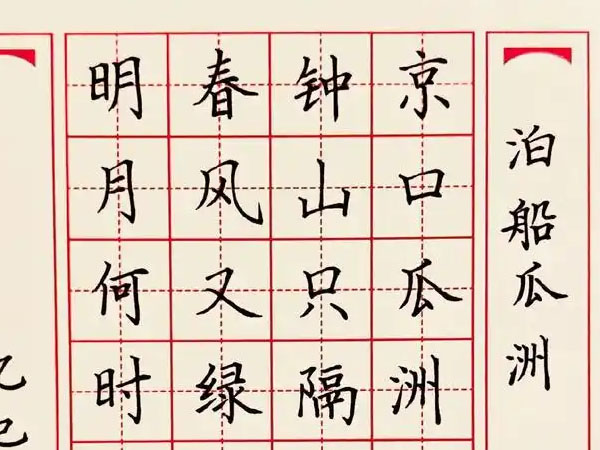 泊船瓜洲
京口瓜洲
钟山只隔
春风又绿
明月何时